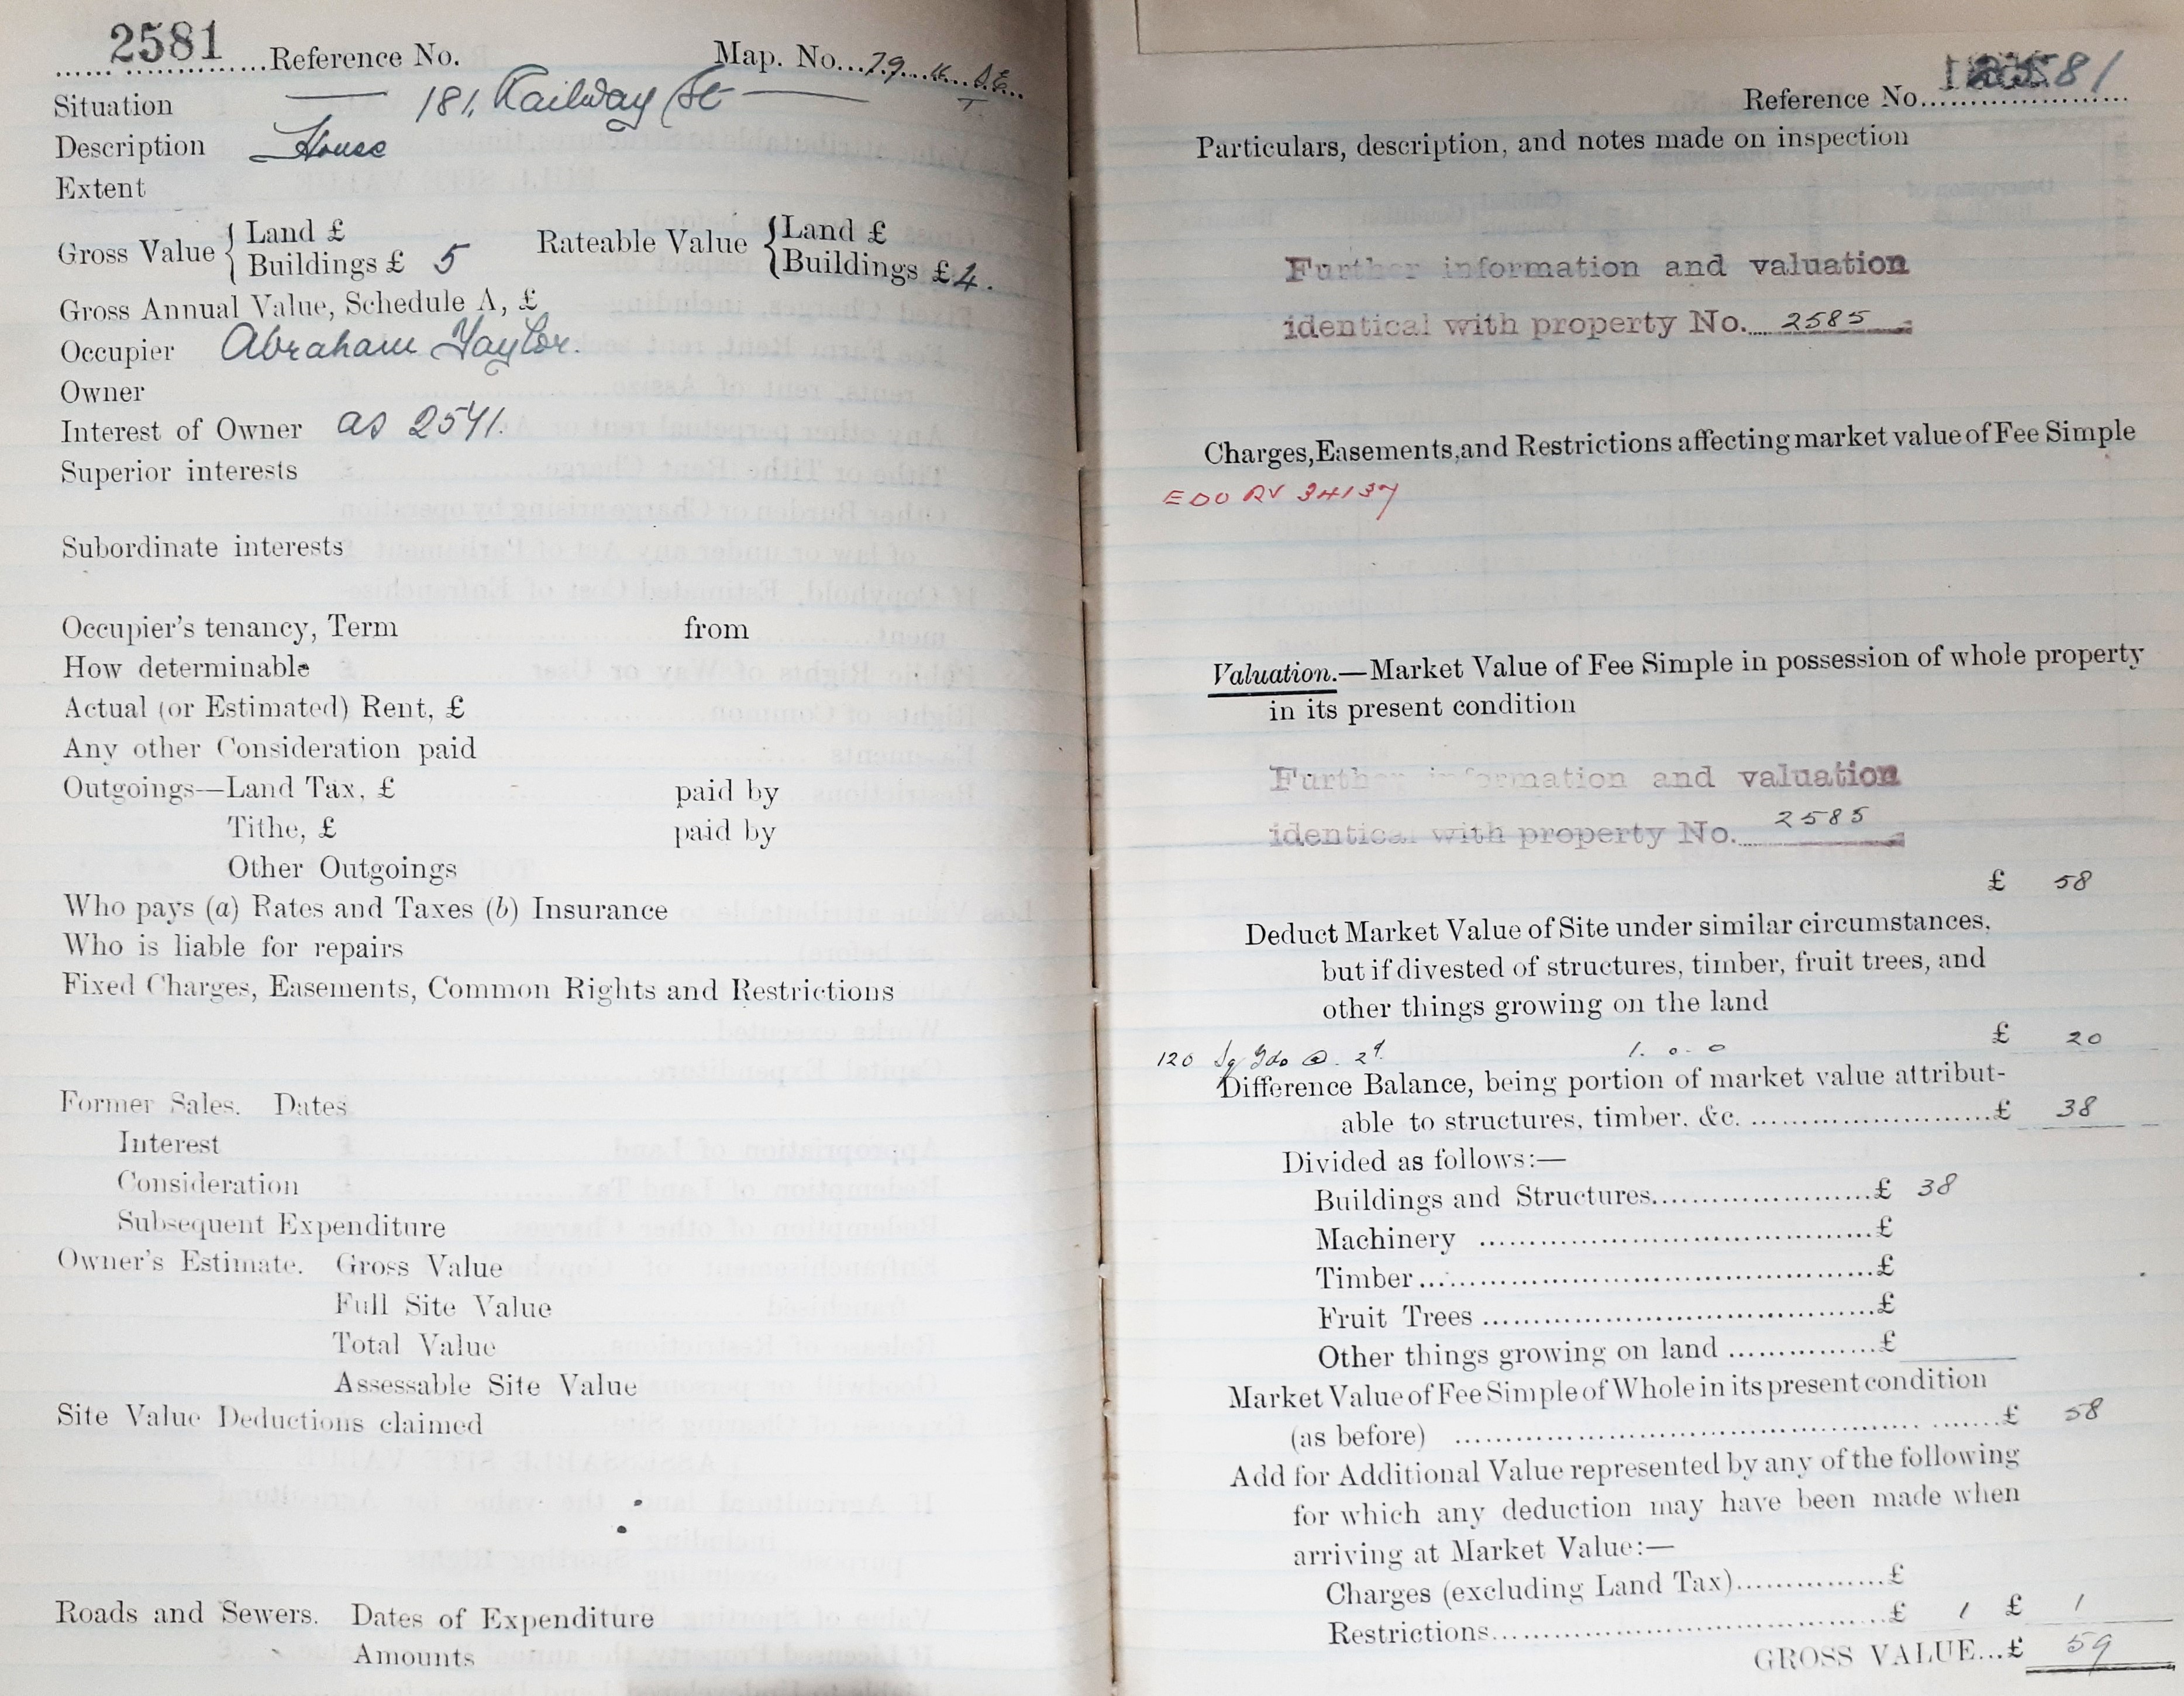 2581 Reference No. Map. No. 79.16.S.E.
Situation 181, Railway St
Description House
Extent
Gross Value { Land £
Buildings £ 5
Rateable Value { Land £
Buildings £ 4.
Gross Annual Value, Schedule A, £
Occupier Abraham Taylor.
Owner
Interest of Owner as 2541.
Superior interests
Subordinate interests
Occupier's tenancy, Term from
How determinable
Actual (or Estimated) Rent, £
Any other Consideration paid
Outgoings—Land Tax, £ paid by
Tithe, £ paid by
Other Outgoings
Who pays (a) Rates and Taxes (b) Insurance
Who is liable for repairs
Fixed Charges, Easements, Common Rights and Restrictions
Former Sales. Dates
Interest
Consideration
Subsequent Expenditure
Owner's Estimate. Gross Value
Full Site Value
Total Value
Assessable Site Value
Site Value Deductions claimed
Roads and Sewers. Dates of Expenditure
Amounts
Reference No. 2581
Particulars, description, and notes made on inspection
Further information and valuation
identical with property No. 2585
Charges, Easements, and Restrictions affecting market value of Fee Simple
EDO RV 34137
Valuation.—Market Value of Fee Simple in possession of whole property
in its present condition
Further information and valuation
identical with property No. 2585
£ 58
Deduct Market Value of Site under similar circumstances,
but if divested of structures, timber, fruit trees, and
other things growing on the land
£ 20
120 Sq Yds @ 2d. 1. 0. 0
Difference Balance, being portion of market value attribut-
able to structures, timber, &c. £ 38
Divided as follows:—
Buildings and Structures £ 38
Machinery £
Timber £
Fruit Trees £
Other things growing on land £
Market Value of Fee Simple of Whole in its present condition
(as before) £ 58
Add for Additional Value represented by any of the following
for which any deduction may have been made when
arriving at Market Value:—
Charges (excluding Land Tax) £
Restrictions £ 1 £ 1
GROSS VALUE...£ 59